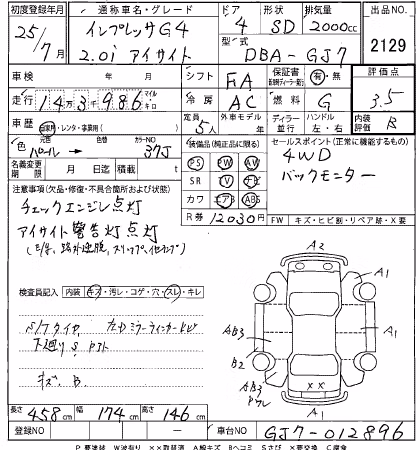 初度登録年月 通称車名・グレード ドア 形状 排気量 出品NO.
25/7月 インプレッサG4 4 SD 2000cc
2.0i アイサイト 型式 DBA-GJ7 2129
車検 年 月 シフト FA 保証書 有・無 評価点
走行 14万3千986 マイル キロ 冷房 AC 燃料 G 3.5
車歴 自家用・レンタ・事業用( ) 定員 5人 外車モデル 年 ディーラー 並行 ハンドル 左・右 内装 B
色 パール→ 元色 色替 カラーNO 37J
名義変更期限 月 日迄 積載 t
装備品(純正品に限る)
PS PW AW
SR TV ナビ
カワ エアB ABS
R券 12030円
セールスポイント(正常に機能するもの)
4WD
バックモニター
注意事項(欠品・修復・不具合箇所および状態)
チェックエンジン点灯
アイサイト警告灯点灯
FW キズ・ヒビ割・リペア跡・X要
検査員記入 内装 キズ・汚レ・コゲ・穴・スレ・キレ
S/Fタイヤ
下廻りS
キズ、B.
A2
A1
A1
AB3
A3
B2
AB3
XX
A1
長さ 458cm 幅 174cm 高さ 146cm
登録NO － 車台NO GJ7-012896
P要塗装 W波有り XX取替済 A線キズ Bヘコミ Sさび X要交換 C腐食